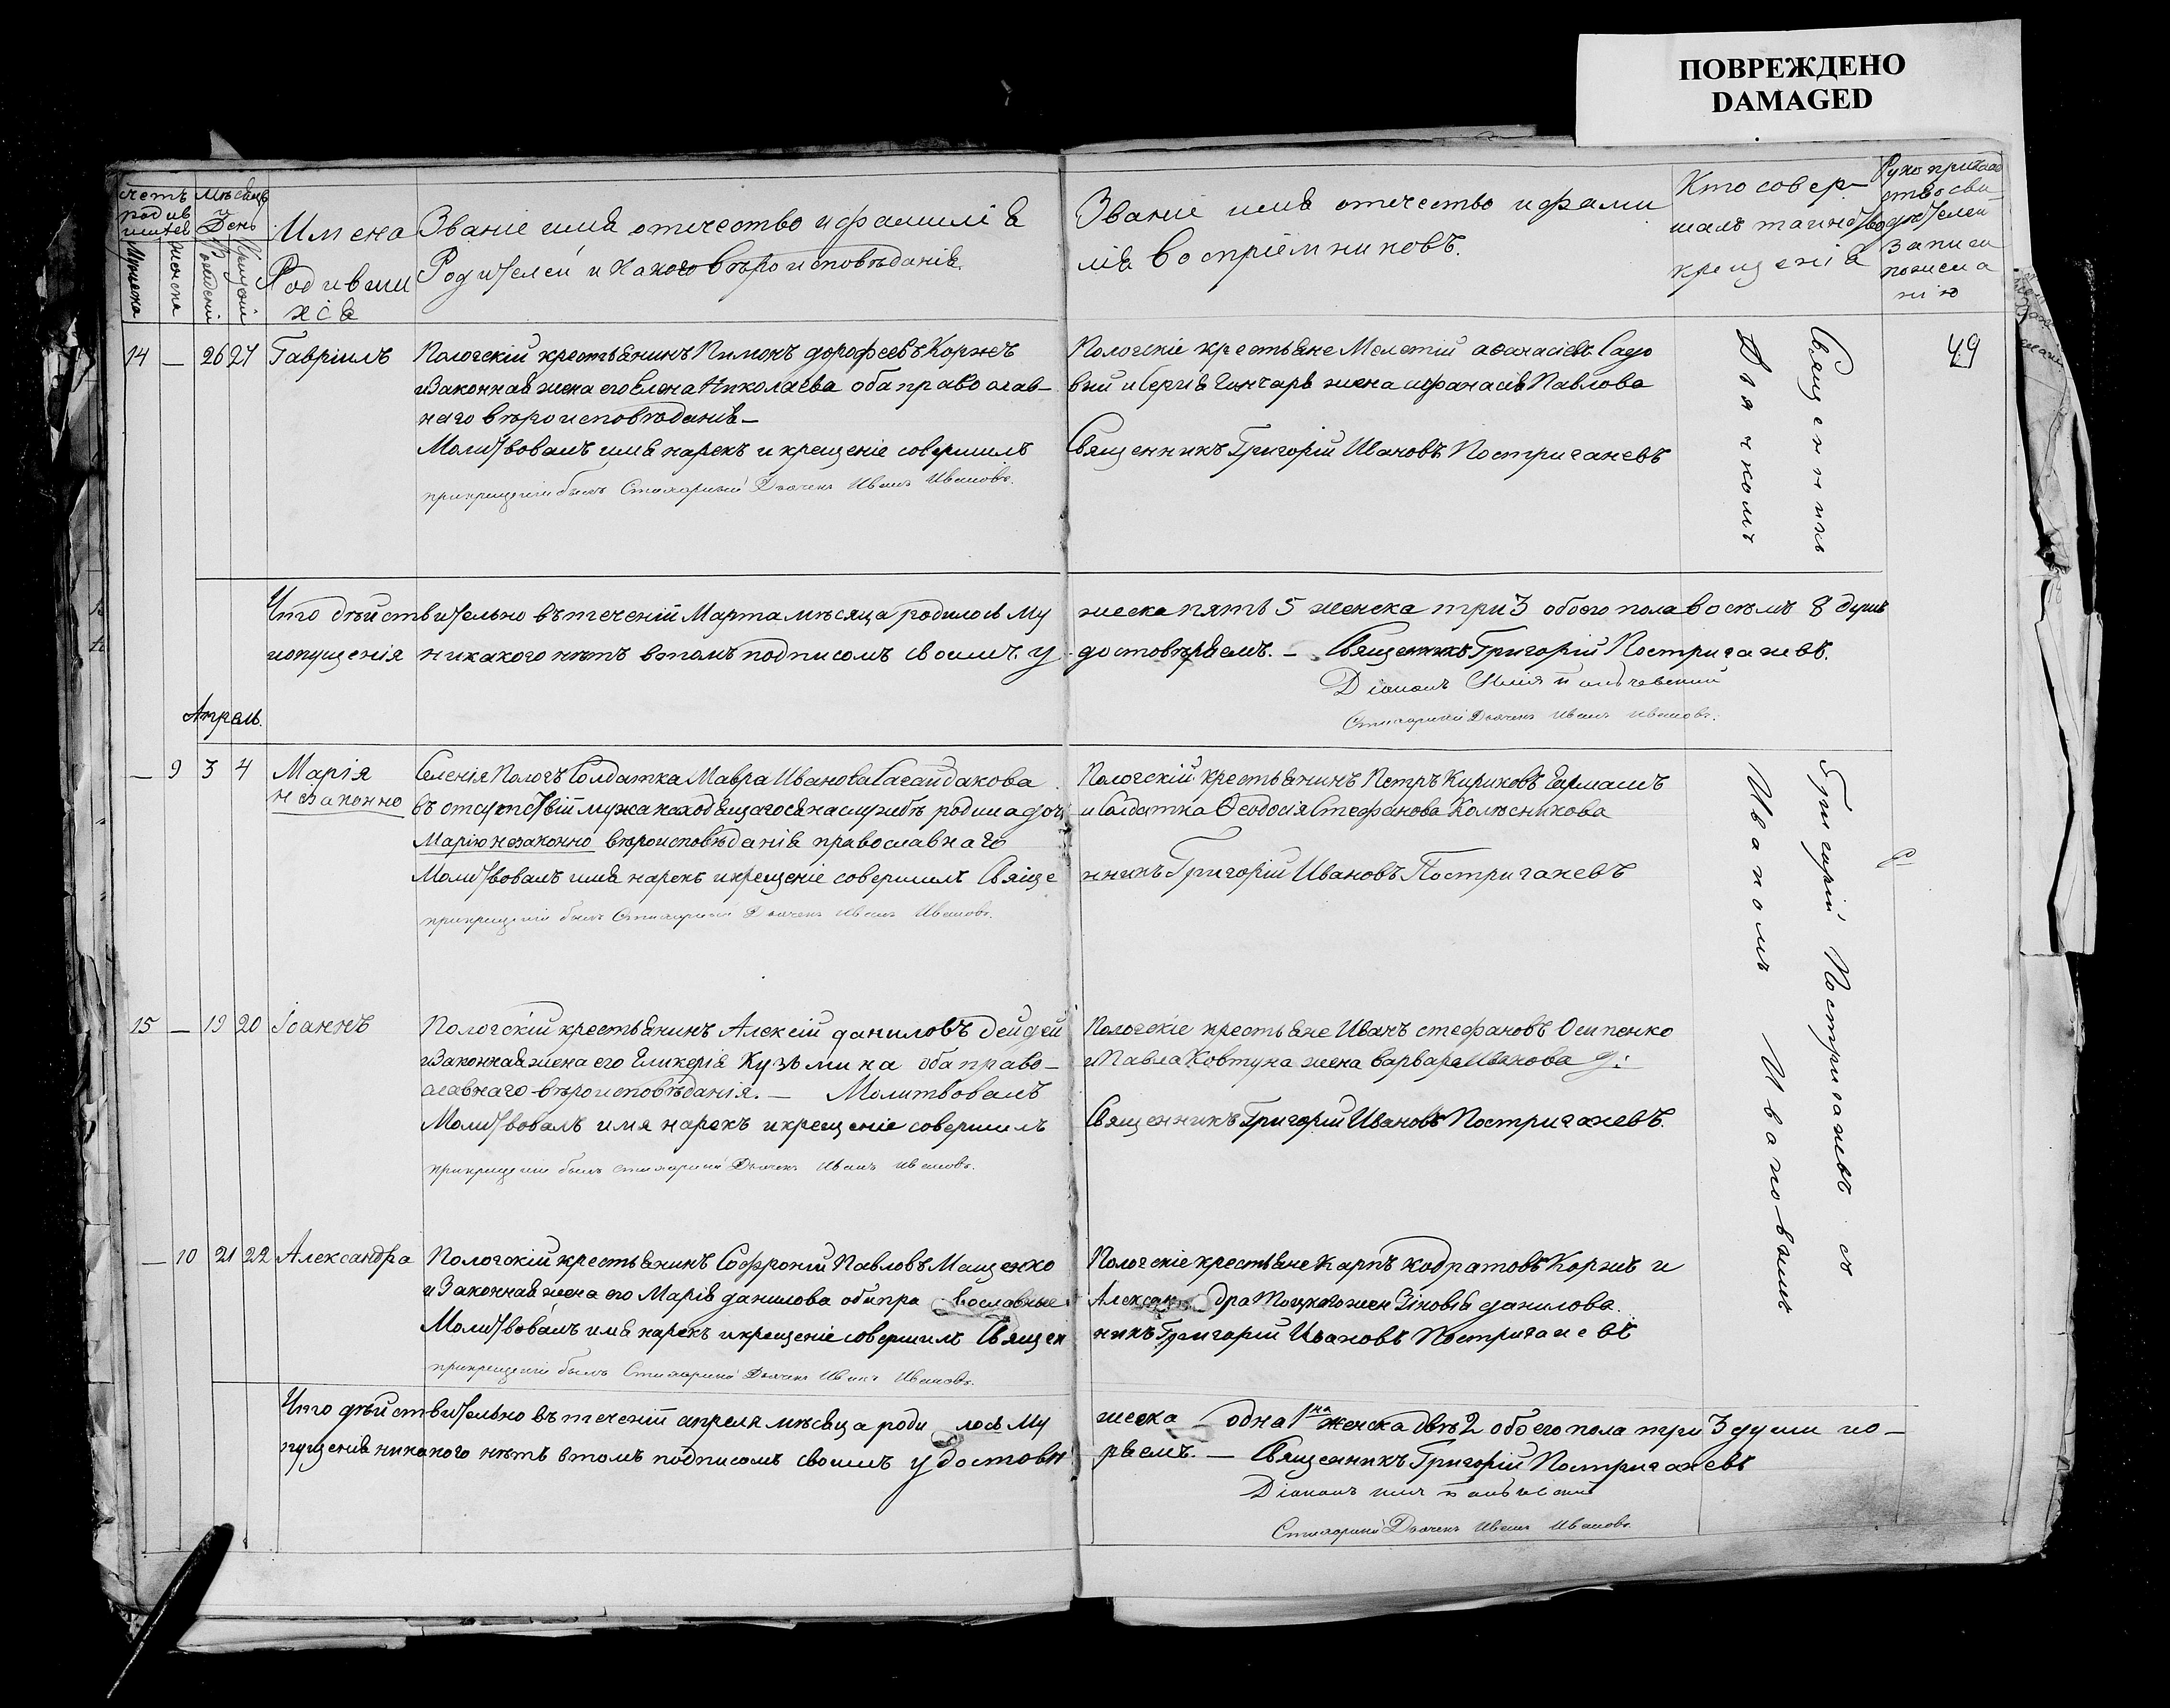 ПОВРЕЖДЕНО
DAMAGED
Счетъ родившихся
Мужеска
Женска
Мѣсяцъ и День
Рожденія
Крещенія
Имена Родившихся
Званіе имя отечество и фамилія
Родителей и какого вѣроисповѣданія.
Званіе имя отечество и фами
лія воспріемниковъ.
Кто совер-
шалъ таинство
крещенія
Рукоприкладство свидѣтелей записи по желанію
14 — 26 27 Гавріилъ
Пологскій крестьянинъ Пимонъ дорофеевъ Коржъ
и Законная жена его Елена Николаева оба православ-
наго вѣроисповѣданія —
Молитвовалъ имя нарекъ и крещеніе совершилъ
при крещеніи былъ Стихарный Дьячекъ Иванъ Ивановъ.
Пологскіе крестьяне Мелетій аѳанасіевъ Садо
вый и Сергія Гончаря жена Афанасія Павлова
Священникъ Григорій Ивановъ Постригачевъ
49
Что дѣйствительно въ теченіи Марта мѣсяца родилось му
жеска пять 5 женска три 3 обоего пола восѣмъ 8 душъ
и опущенія никакого нѣтъ в томъ подписомъ своимъ у
достовѣряемъ. — Священникъ Григорій Постригачевъ.
Діаконъ Илія
Стихарный Дьячекъ Иванъ Ивановъ.
Апрель.
— 9 3 4 Марія
незаконно
Селенія Пологъ Солдатка Мавра Иванова Сагайдакова
въ отсутствій мужа находящагося на службѣ родила дочь
Марію незаконно вѣроисповѣданія православнаго
Молитвовалъ имя нарекъ и крещеніе совершилъ Свяще
при крещеніи былъ Стихарный Дьячекъ Иванъ Ивановъ.
Пологскій крестьянинъ Петръ Кириковъ Ермашъ
и Солдатка Ѳеодосія Стефанова Колѣсникова
нникъ Григорій Ивановъ Постригачевъ
15 — 19 20 Іоаннъ
Пологскій крестьянинъ Алексій даниловъ Дейдей
и Законная жена его Гликерія Кузьмина оба право-
славнаго вѣроисповѣданія. — Молитвовалъ
Молитвовалъ имя нарекъ и крещеніе совершилъ
при крещеніи былъ стихарный Дьячекъ Иванъ Ивановъ.
Пологскіе крестьяне Иванъ стефановъ Осипенко
и Павла Ковтуна жена варвара Иванова
Священникъ Григорій Ивановъ Постригачевъ.
— 10 21 22 Александра
Пологскій крестьянинъ Софроній Павловъ Мащенко
и Законная жена его Марія данилова оба православные
Молитвовалъ имя нарекъ и крещеніе совершилъ Священ
при крещеніи былъ Стихарный Дьячекъ Иванъ Ивановъ.
Пологскіе крестьяне Карпъ кодратовъ Коржъ и
Александра жен Зіновія данилова.
никъ Григорій Ивановъ Постригачевъ
Что дѣйствительно въ теченіи апреля мѣсяца родилось му
жеска одна 1на женска двѣ 2 обоего пола три 3 души ио-
пущенія никакого нѣтъ в томъ подписомъ своимъ удостовѣ
ряемъ. — Священникъ Григорій Постригачевъ
Діаконъ
Стихарный Дьячекъ Иванъ Ивановъ.
Священникъ Григорій Постригачевъ съ
Дьячкомъ Иваномъ Ивановымъ